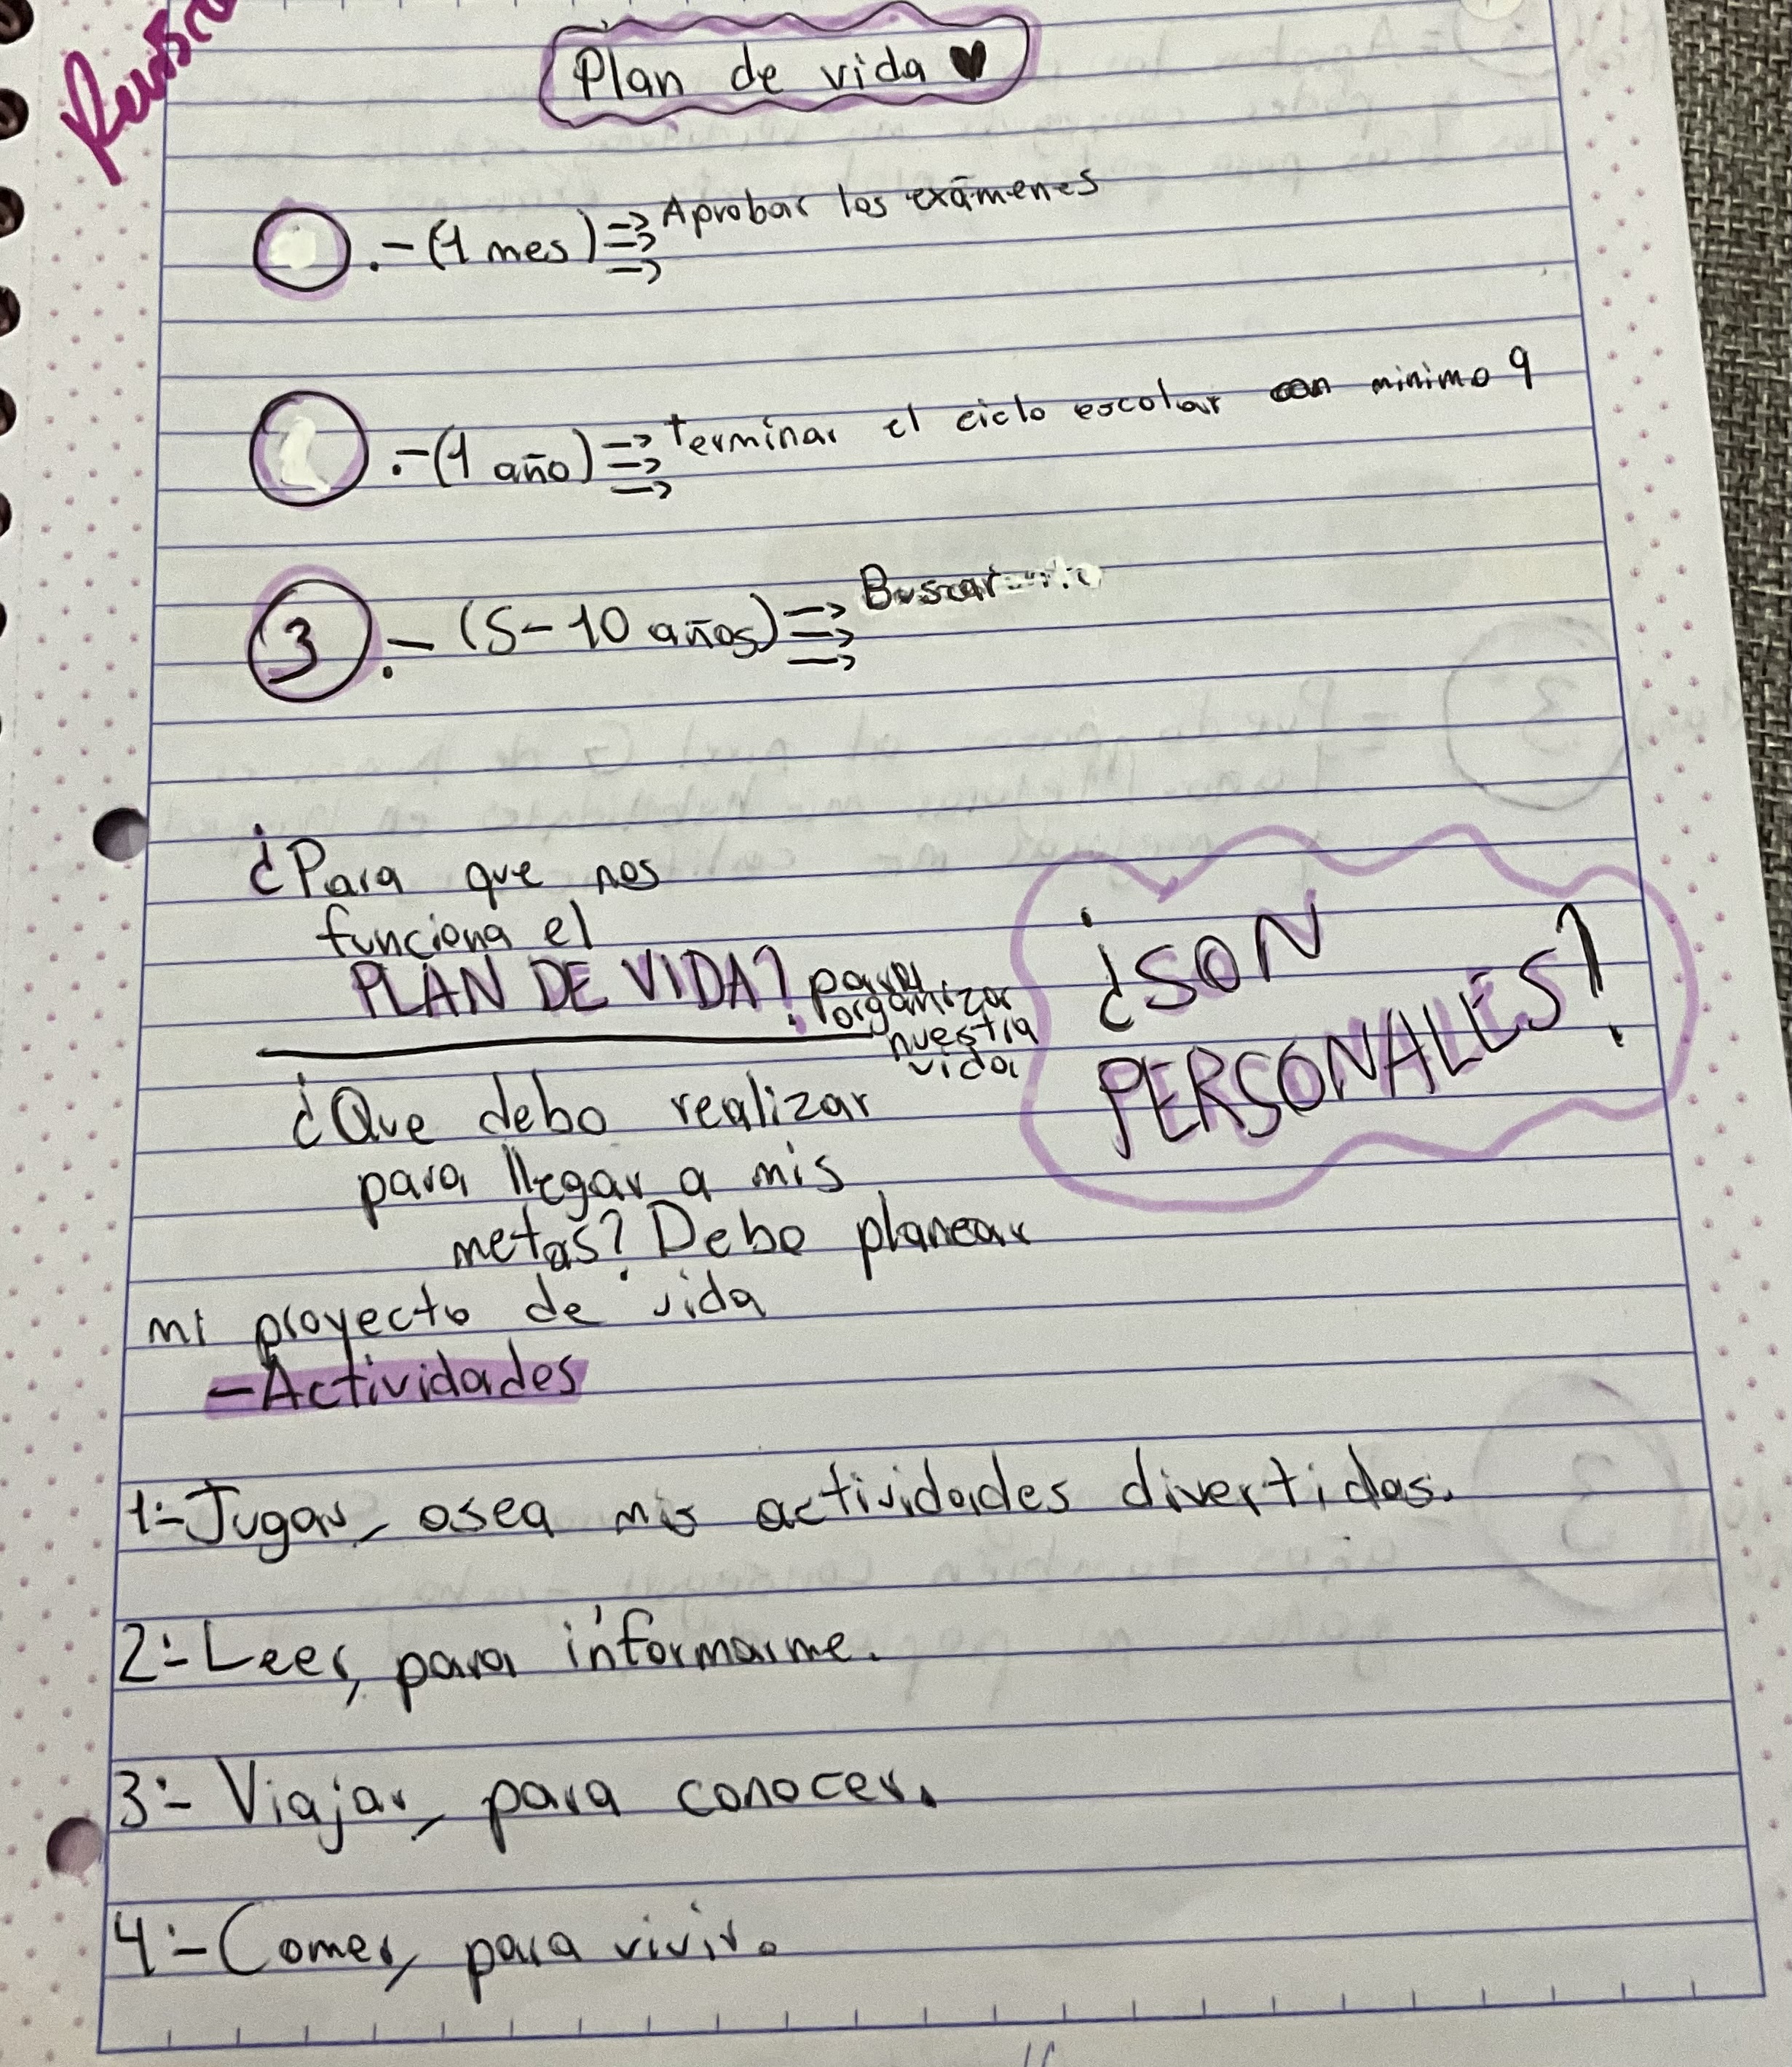 Plan de vida ♥
.-(1 mes) ⇒ Aprobar los exámenes
.-(1 año) ⇒ Terminar el ciclo escolar con minimo 9
3.- (5-10 años) ⇒ Buscar
¿Para que nos
funciona el
PLAN DE VIDA? para
organizar
nuestra
vida
¿SON
PERSONALES?
¿Que debo realizar
para llegar a mis
metas? Debo planear
mi proyecto de vida
-Actividades
1.-Jugar, osea mis actividades divertidas.
2.-Leer, para informarme.
3.- Viajar, para conocer.
4.-Comer, para vivir.